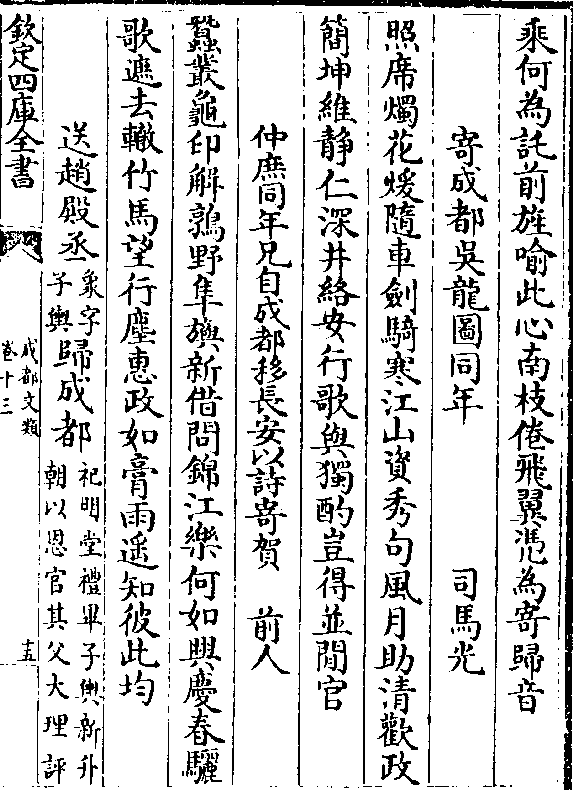 乘何為託前旌喻此心南枝倦飛翼憑為寄歸音
寄成都吳龍圖同年 司馬光
照席燭花煖隨車劍騎寒江山資秀句風月助清歡政
簡坤維静仁深井絡安行歌與獨酌豈得並閒官
仲庶同年兄自成都移長安以詩寄賀 前人
蠶叢龜印解鶉野隼旟新借問錦江樂何如興慶春驪
歌遮去轍竹馬望行塵惠政如膏雨遥知彼此均
送趙殿丞 彖字子輿 歸成都 祀明堂禮畢子輿新升朝以恩官其父大理評
欽定四庫全書
成都文類
卷十三
十五